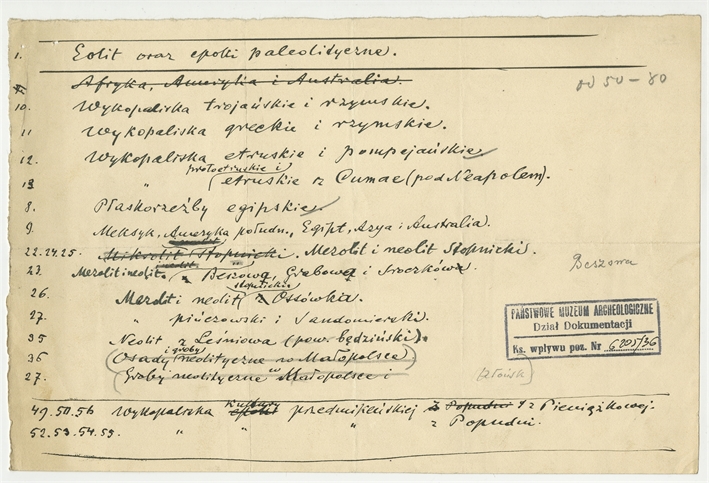 1. Eolit oraz epoki paleolityczne.
Afryka, Ameryka i Australia.
od 50-80
10. Wykopaliska trojańskie i rzymskie.
11 Wykopaliska greckie i rzymskie.
12. Wykopaliska etruskie i pompejańskie
protoetruskie i
13 " etruskie z Cumae (pod Neapolem).
8. Płaskorzeźby egipskie
9. Meksyk, Ameryka połudn., Egipt, Azya i Australia.
22.24.25. Mikrolit stopnicki, Mezolit i neolit Stopnicki.
23. Mezolit i neolit z Beszową, Grabową i Sroczków
Beszowa
stopnicki
26. Mezolit i neolit z Ossówka.
27. " pińczowski i Sandomierski.
35 Neolit z Leśniowa (pow. Będziński).
i groby
36 (Osady neolityczne w Małopolsce)
27. (Groby neolityczne w Małopolsce i
(złoisk)
PAŃSTWOWE MUZEUM ARCHEOLOGICZNE
Dział Dokumentacji
Ks. wpływu poz. Nr 6205/36
kultury
49.50.56 Wykopaliska epoki przedmikeńskiej z Popudni i z Pieniążkowej.
52.53.54.55. " " " z Popudni.